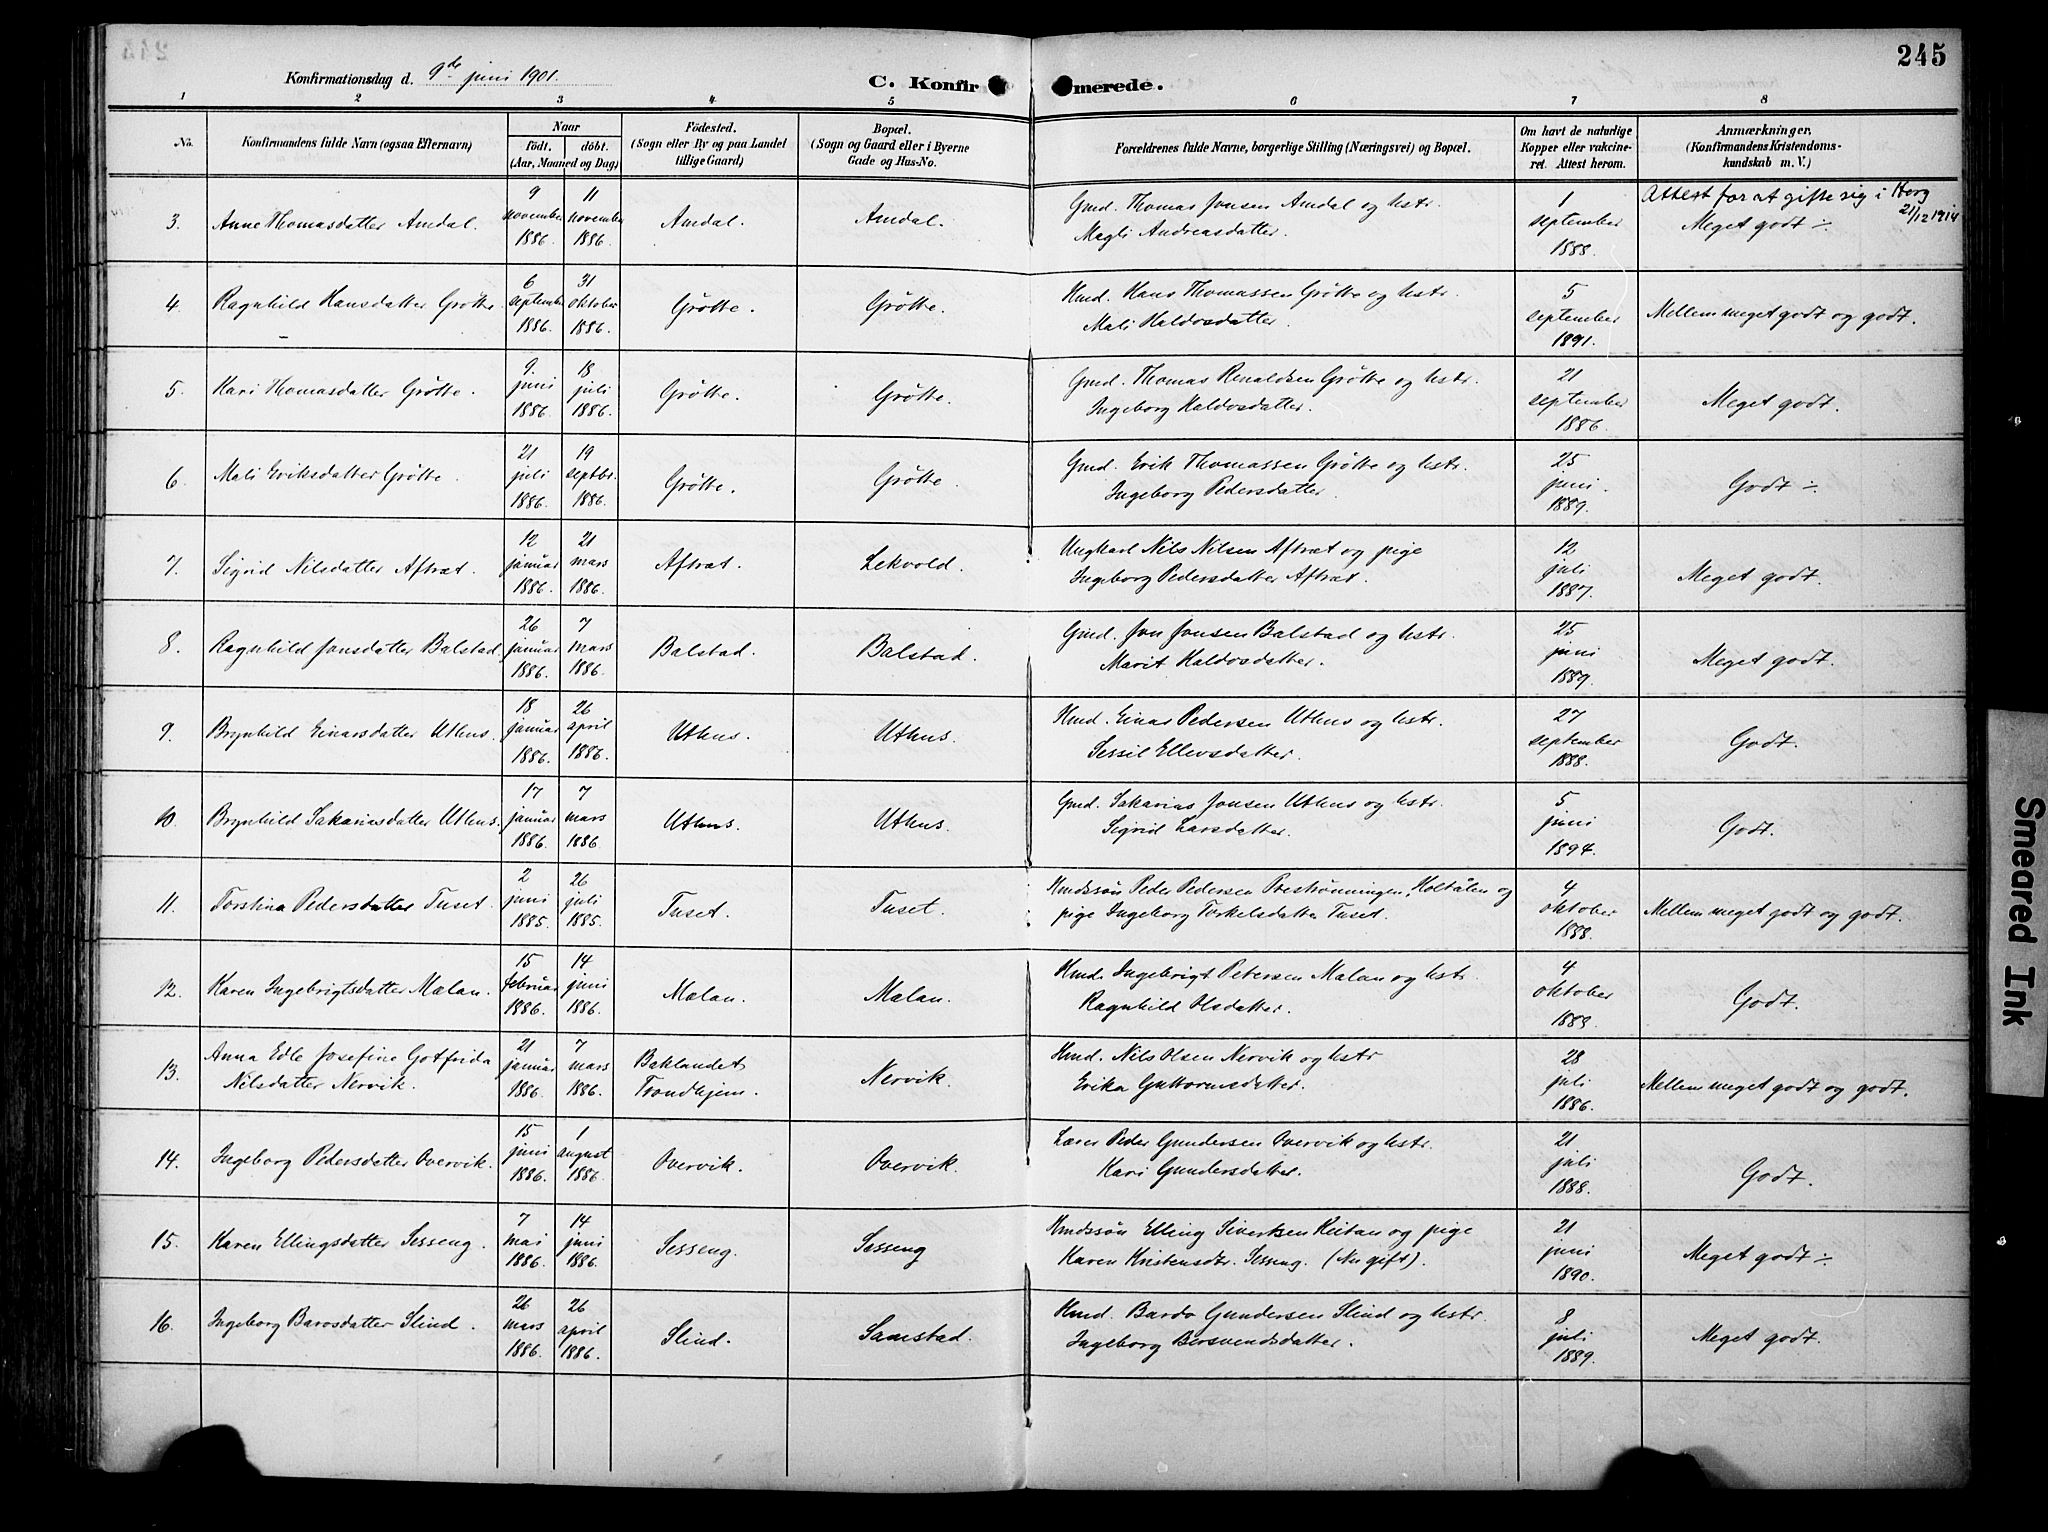 245
Konfirmationsdag d. 9de juni 1901.
C. Konfirmerede.
1 2 3 4 5 6 7 8
No.
Konfirmandens fulde Navn (ogsaa Efternavn)
Naar
födt. döbt.
(Aar, Maaned og Dag)
Födested.
(Sogn eller By og paa Landet
tillige Gaard)
Bopæl.
(Sogn og Gaard eller i Byerne
Gade og Hus-No.
Forældrenes fulde Navne, borgerlige Stilling (Næringsvei) og Bopæl.
Om havt de naturlige
Kopper eller vakcine-
ret. Attest herom.
Anmærkninger,
(Konfirmandens Kristendoms-
kundskab m. V.)
3. Anne Thomasdatter Amdal. 9 november 1886. 11 november 1886. Amdal. Amdal.
Gmd. Thomas Jonsen Amdal og hstr.
Magli Andreasdatter.
1 september 1888.
Attest for at gifte sig i Horg
21/12 1914
Meget godt ÷
4. Ragnhild Hansdatter Grøtte. 6 september 1886. 31 oktober 1886. Grøtte. Grøtte.
Hmd. Hans Thomassen Grøtte og hstr.
Mali Haldosdatter.
5 september 1891.
Mellem meget godt og godt.
5. Kari Thomasdatter Grøtte. 9. juni 1886. 18 juli 1886. Grøtte. Grøtte.
Gmd. Thomas Renaldsen Grøtte og hstr.
Ingeborg Haldosdatter.
21 september 1886.
Meget godt.
6. Mali Eriksdatter Grøtte. 21 juli 1886. 19 septbr. 1886. Grøtte. Grøtte.
Gmd. Erik Thomassen Grøtte og hstr.
Ingeborg Pedersdatter.
25 juni 1889.
Godt ÷
7. Sigrid Nilsdatter Aftræt. 12 januar 1886. 21 mars 1886. Aftræt. Lekvold.
Ungkarl Nils Nilsen Aftræt og pige
Ingeborg Pedersdatter Aftræt.
12 juli 1887.
Meget godt.
8. Ragnhild Jonsdatter Balstad. 26 januar 1886. 7 mars 1886. Balstad. Balstad.
Gmd. Jon Jonsen Balstad og hstr.
Marit Haldosdatter.
25 juni 1889.
Meget godt.
9. Brynhild Einarsdatter Uthus. 18 januar 1886. 26 april 1886. Uthus. Uthus.
Hmd. Einar Pedersen Uthus og hstr.
Sessil Ellevsdatter.
27 september 1888.
Godt.
10. Brynhild Sakariasdatter Uthus. 17 januar 1886. 7 mars 1886. Uthus. Uthus.
Gmd. Sakarias Jonsen Uthus og hstr.
Sigrid Larsdatter.
5 juni 1894.
Godt.
11. Torstina Pedersdatter Tuset. 2 juni 1885. 26 juli 1885. Tuset. Tuset.
Hmdssøn Peder Pedersen Prestrønningen, Holtålen og
pige Ingeborg Torkelsdatter Tuset.
4 oktober 1888.
Mellem meget godt og godt.
12. Karen Ingebrigtsdatter Mælan. 15 februar 1886. 14 juni 1886. Mælan. Mælan.
Hmd. Ingebrigt Petersen Mælan og hstr.
Ragnhild Olsdatter.
4 oktober 1888.
Godt.
13. Anna Edle Josefine Gotfrida
Nilsdatter Nervik. 21 januar 1886. 7 mars 1886. Baklandet
Trondhjem. Nervik.
Hmd. Nils Olsen Nervik og hstr
Erika Guttormsdatter.
28 juli 1886.
Mellem meget godt og godt.
14. Ingeborg Pedersdatter Overvik. 15 juni 1886. 1 august 1886. Overvik. Overvik.
Lærer Peder Gundersen Overvik og hstr.
Kari Gundersdatter.
21 juli 1888.
Godt.
15. Karen Ellingsdatter Sesseng. 7 mai 1886. 14 juni 1886. Sesseng. Sesseng
Hmdssøn Elling Sivertsen Reitan og pige
Karen Kristensdtr. Sesseng. (Nu gift).
21 juni 1890.
Meget godt ÷
16. Ingeborg Barosdatter Slind. 26 mars 1886. 26 april 1886. Slind. Samstad.
Hmd. Bardo Gundersen Slind og hstr
Ingeborg Bersvendsdatter.
8 juli 1889.
Meget godt.
Smeared Ink